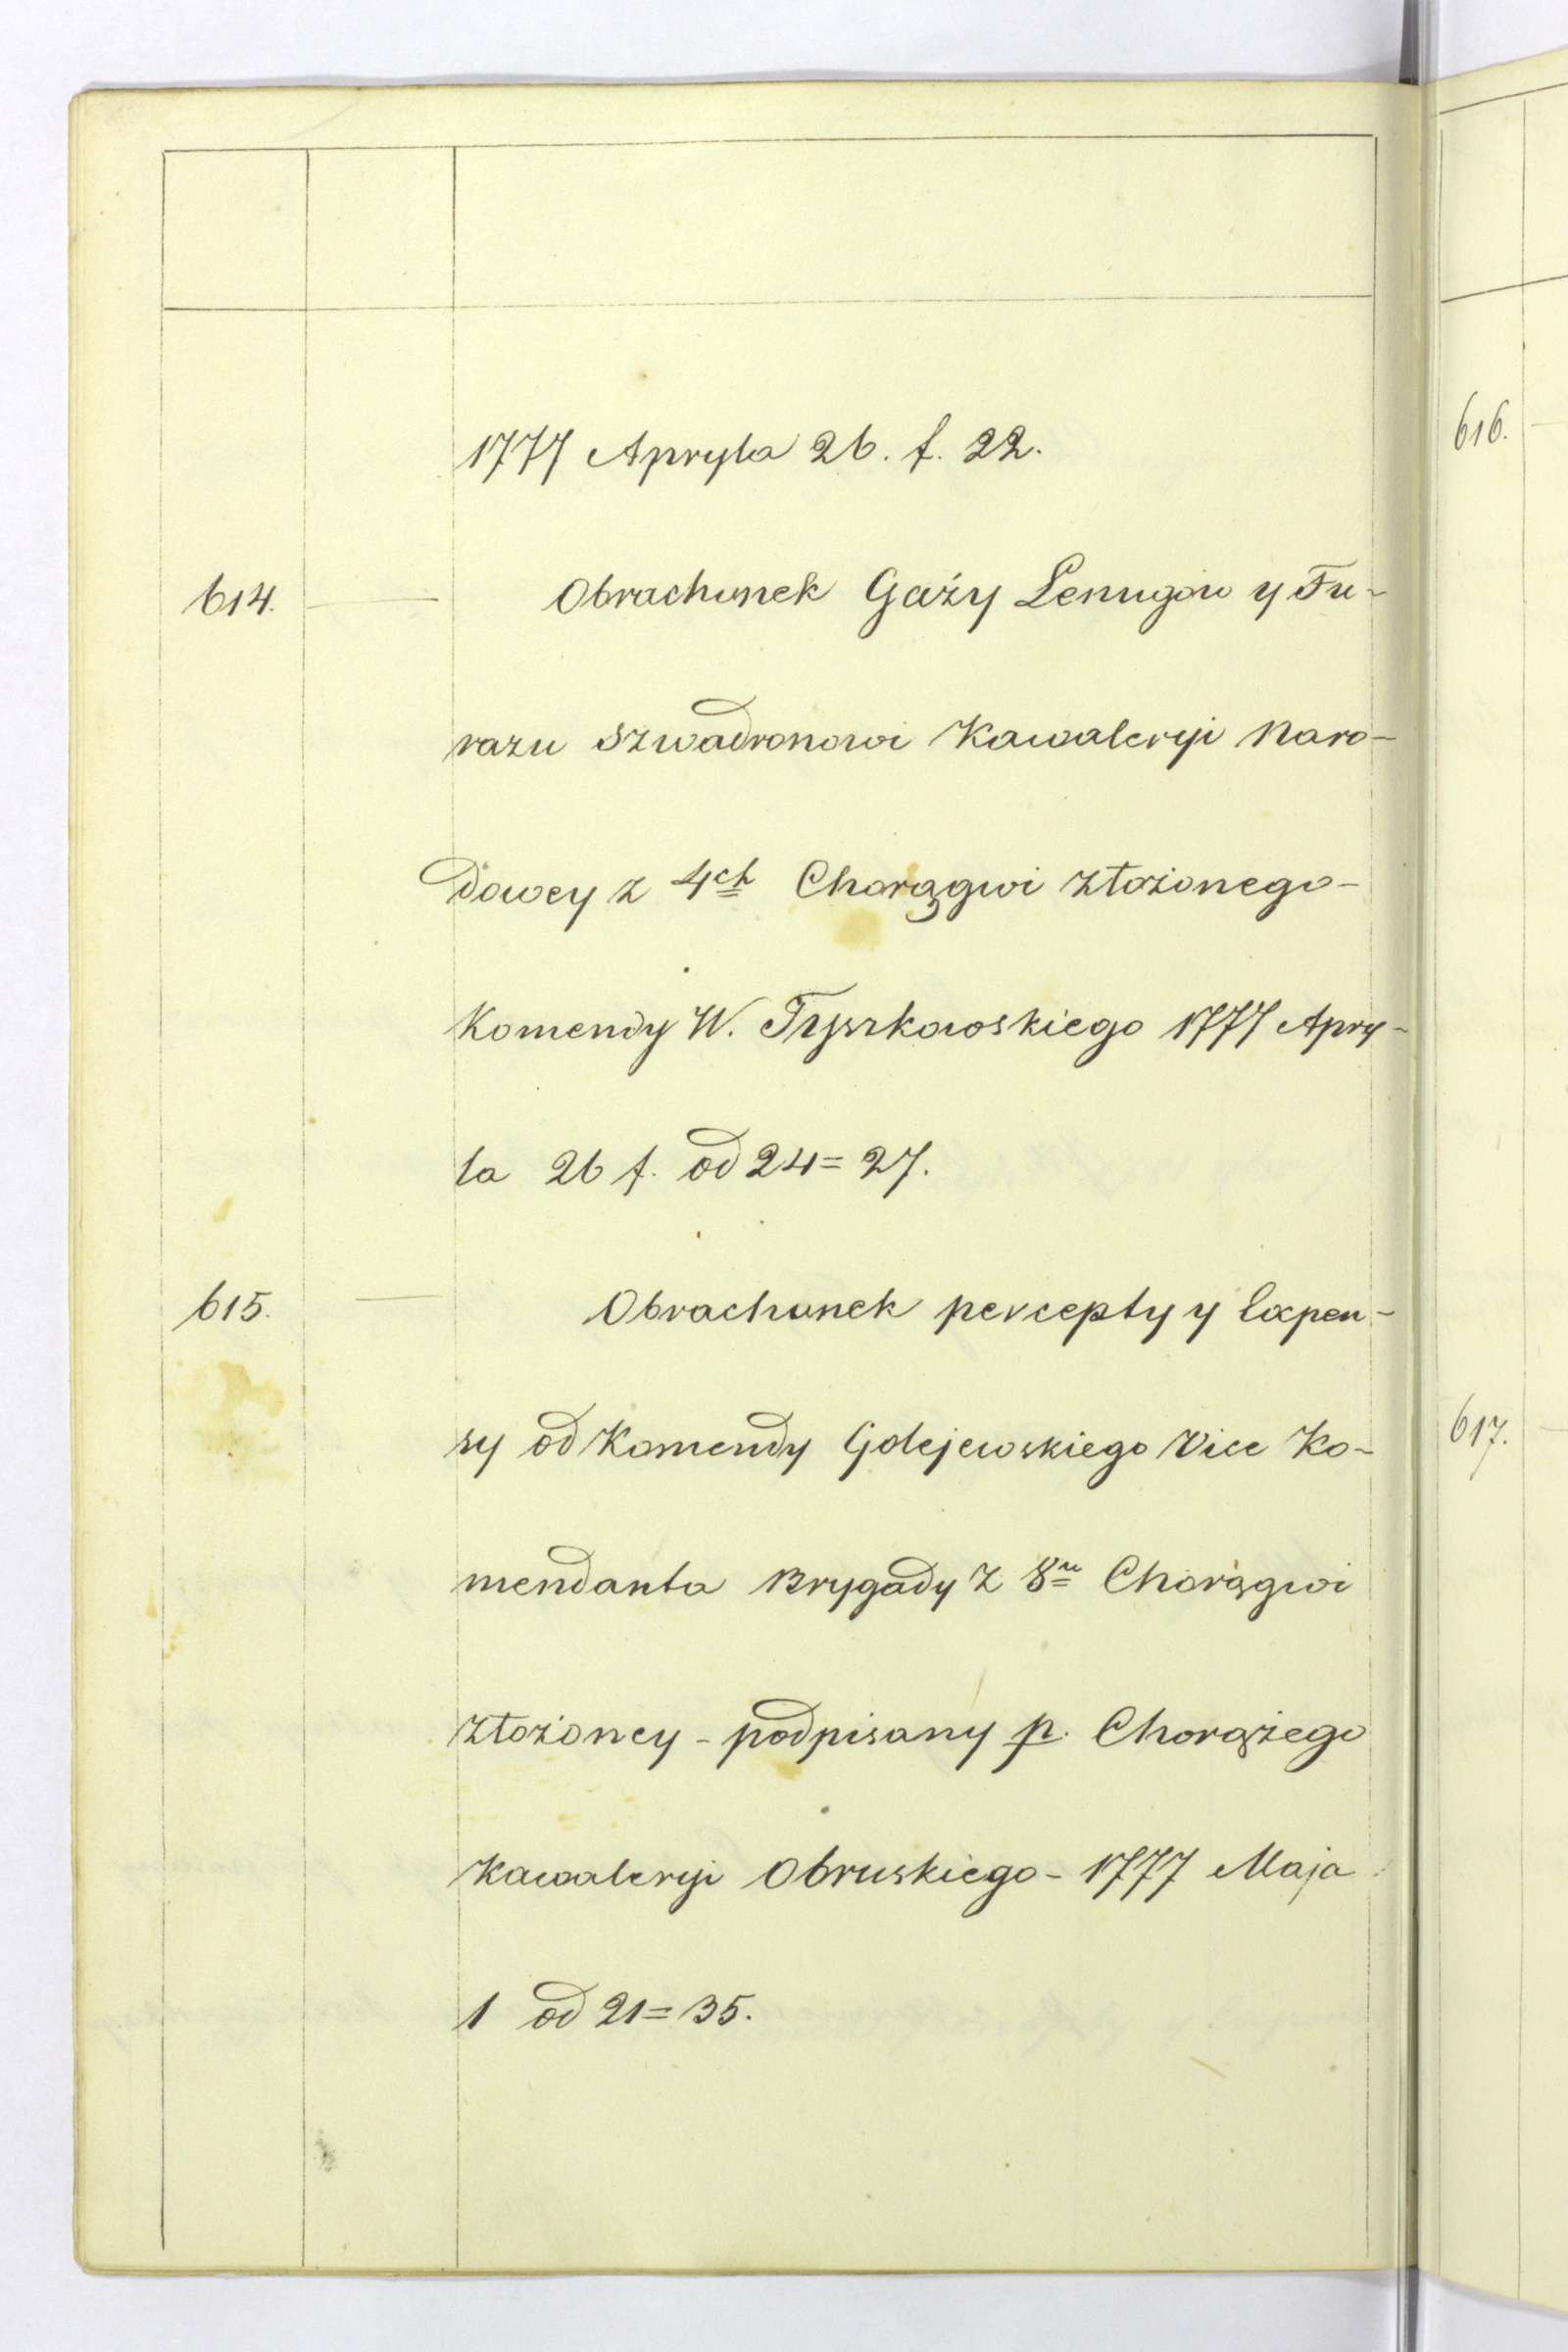 1777 Apryla 26. f. 22.
614. Obrachunek Gaży Lenugów y Fu-
razu Szwadronowi Kawaleryi Naro-
dowey z 4ch Chorągwi złożonego-
Komendy W. Tyszkowskiego 1777 Apry-
la 26 f. od 24=27.
615. Obrachunek percepty y Expen-
sy od Komendy Golejewskiego Vice Ko-
mendanta Brygady z 8u Chorągwi
złożoney - podpisany p. Chorążego
Kawaleryi Obruskiego - 1777 Maja
1 od 21=35.
616.
617.